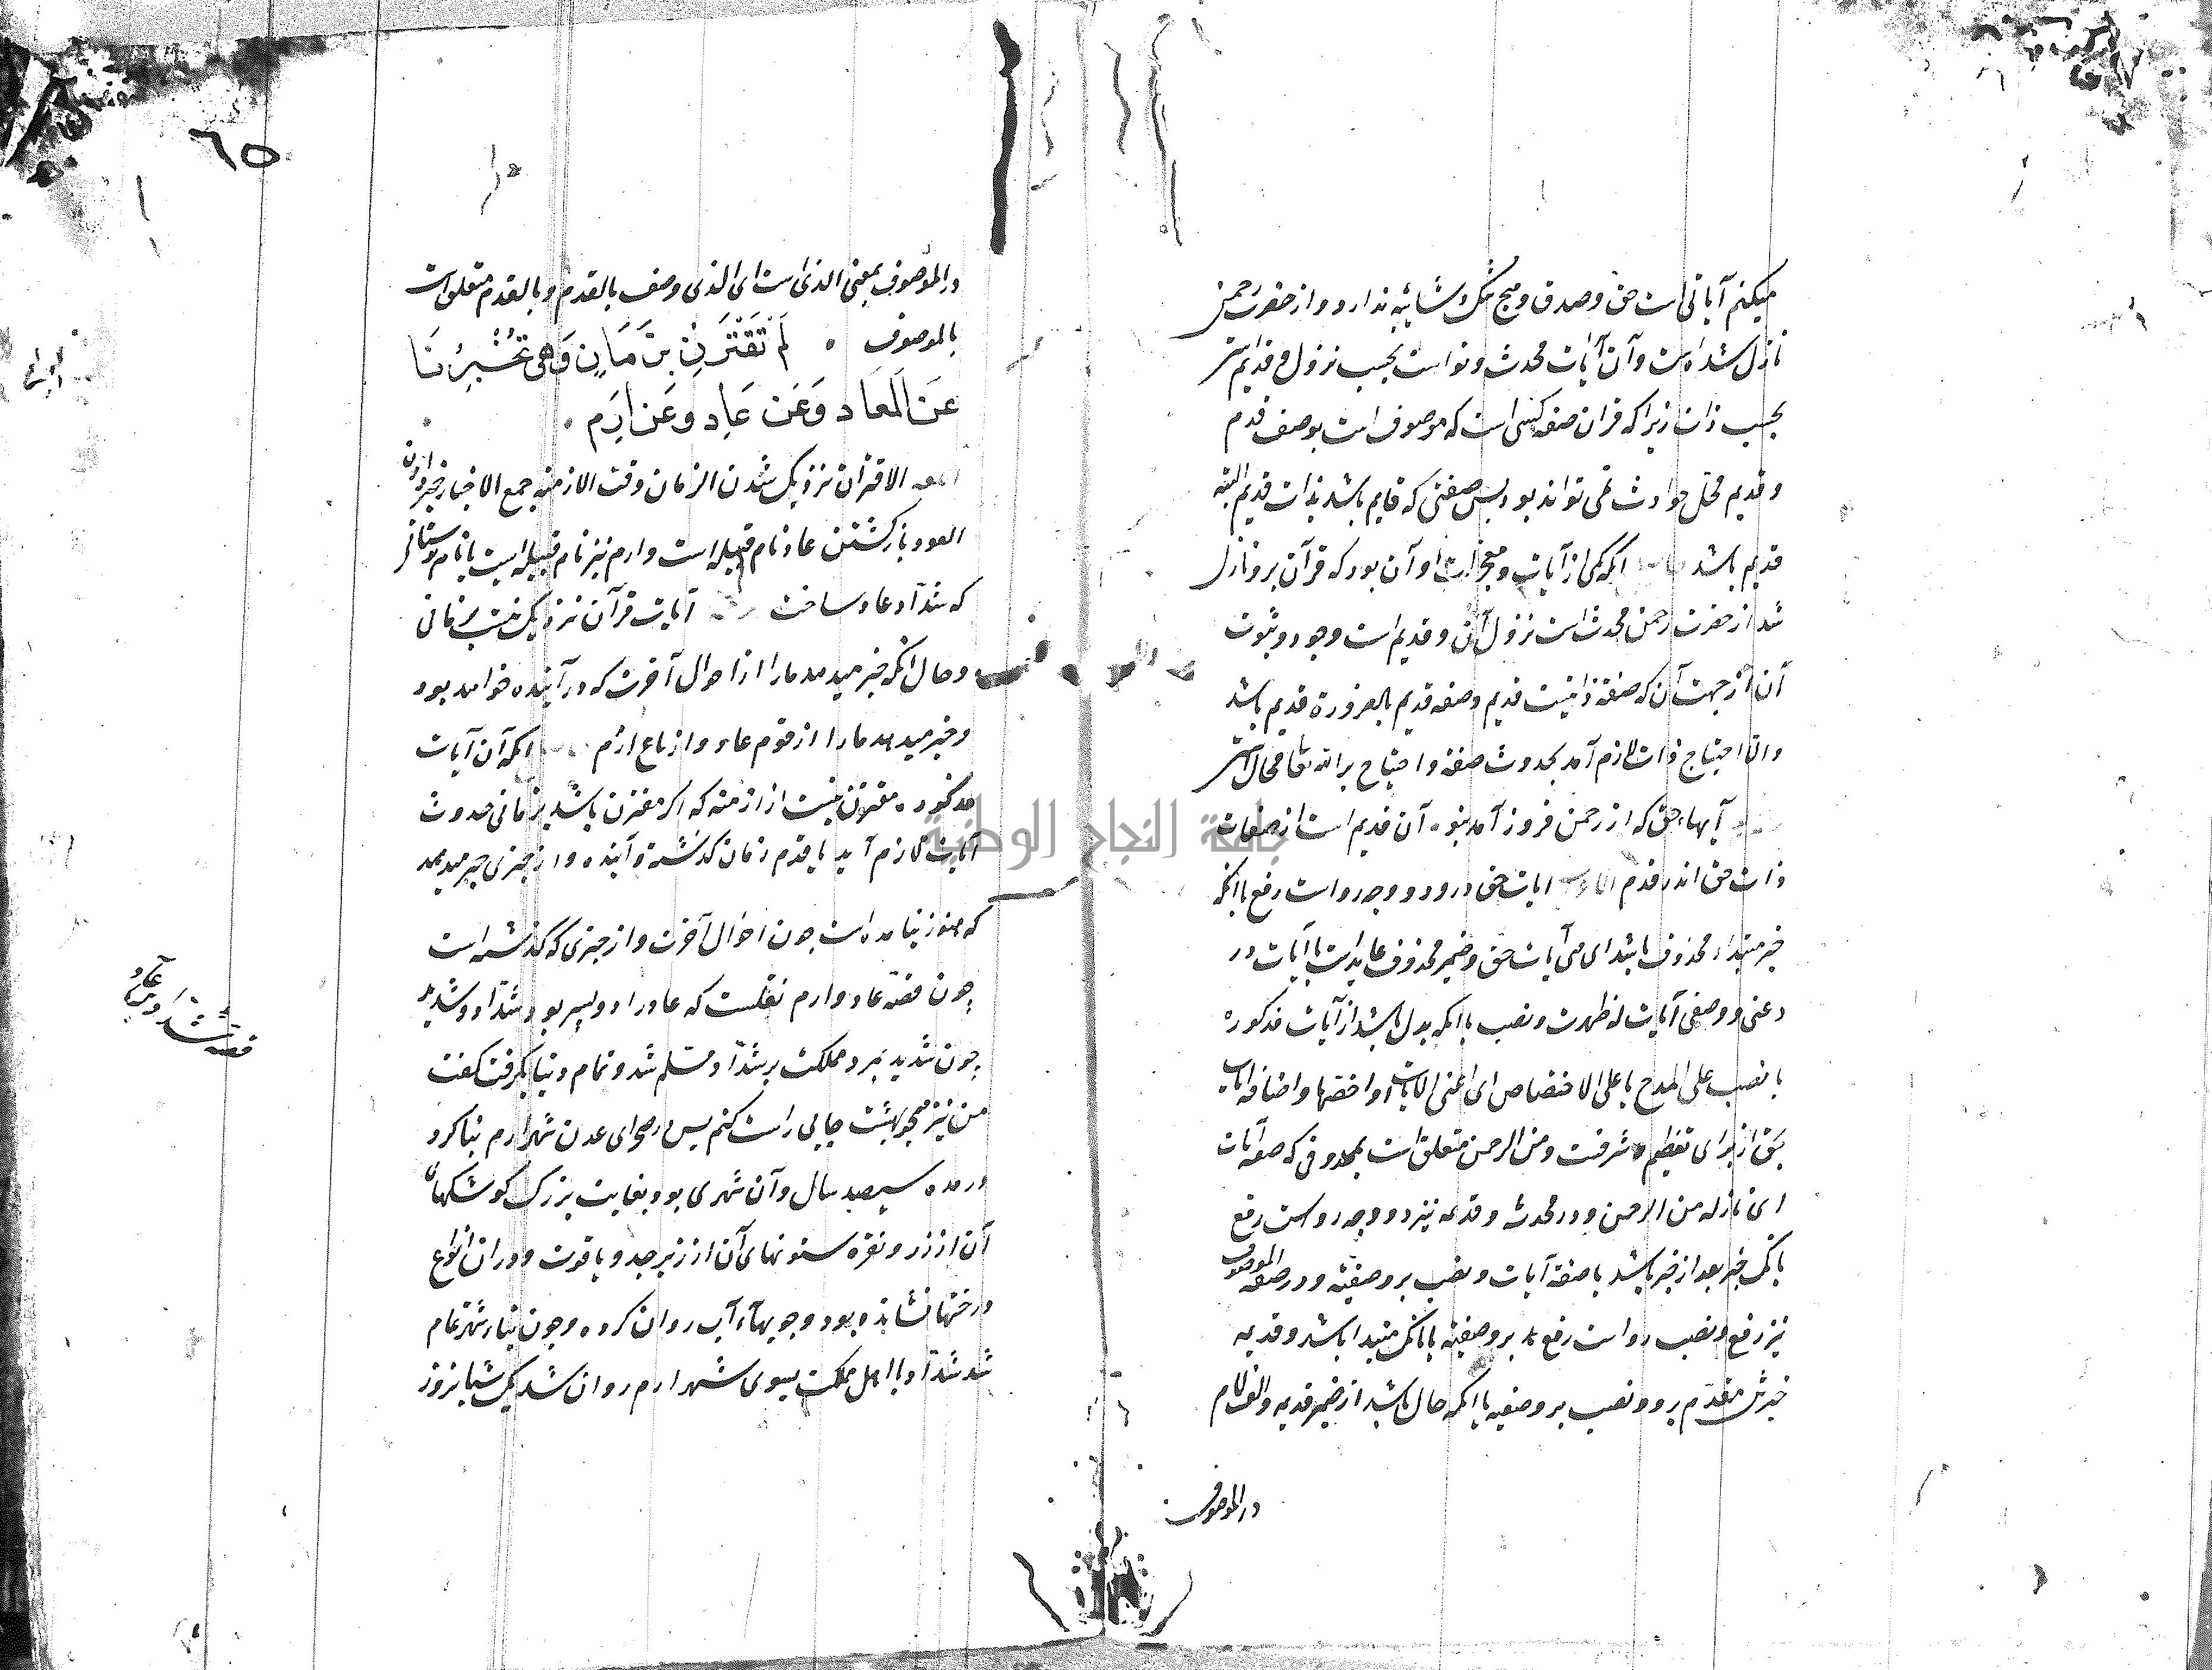 میکنم آیاتی است حق و صدق و هیچ شک و شائبه ندارد و از حضرت رحمن
نازل شده است و آن آیات محدث و نو است بحسب نزول و قدیم است
بحسب ذات زیرا که قران صفه کسی است که موصوف است بوصف قدم
و قدیم محل حوادث نمی تواند بود پس صفتی که قایم باشد بذات قدیم البته
قدیم باشد انکه یکی از آیات و معجزات او آن بود که قرآن برو نازل
شد از حضرت رحمن محدث است نزول آن و قدیم است وجود و ثبوت
آن از جهت آن که صفة ذاتیست قدیم و صفه قدیم بالضرورة قدیم باشد
و الا احتیاج ذات لازم آمد بحدوث صفة و احتیاج بر الله تعا محال است
آیهاء حق که از رحمن فروز آمد بنو آن قدیم است از صفات
ذات حق اندر قدم ایات حق درو دو وجه رواست رفع باانکه
خبر مبتداء محذوف باشد ای هی آیات حق و ضمیر محذوف عاید است باآیات در
دعنی و وصفی آیات له ظهرت و نصب باانکه بدل باشد از آیات مذکوره
یا نصب علی المدح یا علی الاختصاص ای اعنی الایات او اخصها و اضافه ایات
بحق از برای تعظیم و شرفت و من الرحمن متعلق است بمحذوفی که صفه آیات
ای نازله من الرحمن و در محدثه و قدیمه نیز دو وجه رواست رفع
بانکه خبر بعد از خبر باشد یا صفة آیات و نصب بر وصفیته و در صفة الموصوف
نیز رفع و نصب رواست رفع بر وصفیته یا بانکه مبتدا باشد و قدیمه
خبرش مقدم برو و نصب بر وصفیه یا انکه حال باشد از ضمیر قدیمه و الف لام
در الموصوف
٦٥
در الموصوف بمعنی الذی است ای الذی وصف بالقدم و بالقدم متعلق است
بالموصوف لَمْ تَقْتَرِنْ بِزَمَانٍ وَهِیَ تُخْبِرُنَا
عَنِ الْمَعَادِ وَعَنْ عَادٍ وَعَنْ اِرَمِ
الاقتران نزدیک شدن الزمان وقت الازمنه جمع الاخبار خبر دادن
العود بازگشتن عاد نام قبیله است و ارم نیز نام قبیله ایست یا نام بوستانی
که شداد عاد ساخت آیات قرآن نزدیک نیست بزمانی
و حال انکه خبر میدهد مارا از احوال آخرت که در آینده خواهد بود
و خبر میدهد مارا از قوم عاد و از باغ ارم انکه آن آیات
مذکوره مقترن نیست از ازمنه که اکر مقترن باشد بزمانی حدوث
آیات لازم آید یا قدم زمان کذشته و آینده و از چیزی خبر میدهد
که هنوز نیامده است چون احوال آخرت و از چیزی که کذشته است
چون قصه عاد و ارم نقلست که عاد را دو پسر بود شداد و شدید
چون شدید بمرد مملکت بر شداد مسلم شد و تمام دنیا بکرفت کفت
من نیز همچو بهشت جایی راست کنم پس در صحرای عدن شهر ارم بنا کرد
در مده سیصد سال و آن شهری بود بغایت بزرک کوشکهای
آن از زر و نقره ستونهای آن از زبرجد و یاقوت و در ان انواع
درختها نشانده بود و جویهآء آب روان کرده و چون بناء شهر تمام
شد شداد با اهل مملکت بسوی شهر ارم روان شد یک شبانروز
قصه شداد بن عاد
جامعة النجاح الوطنية